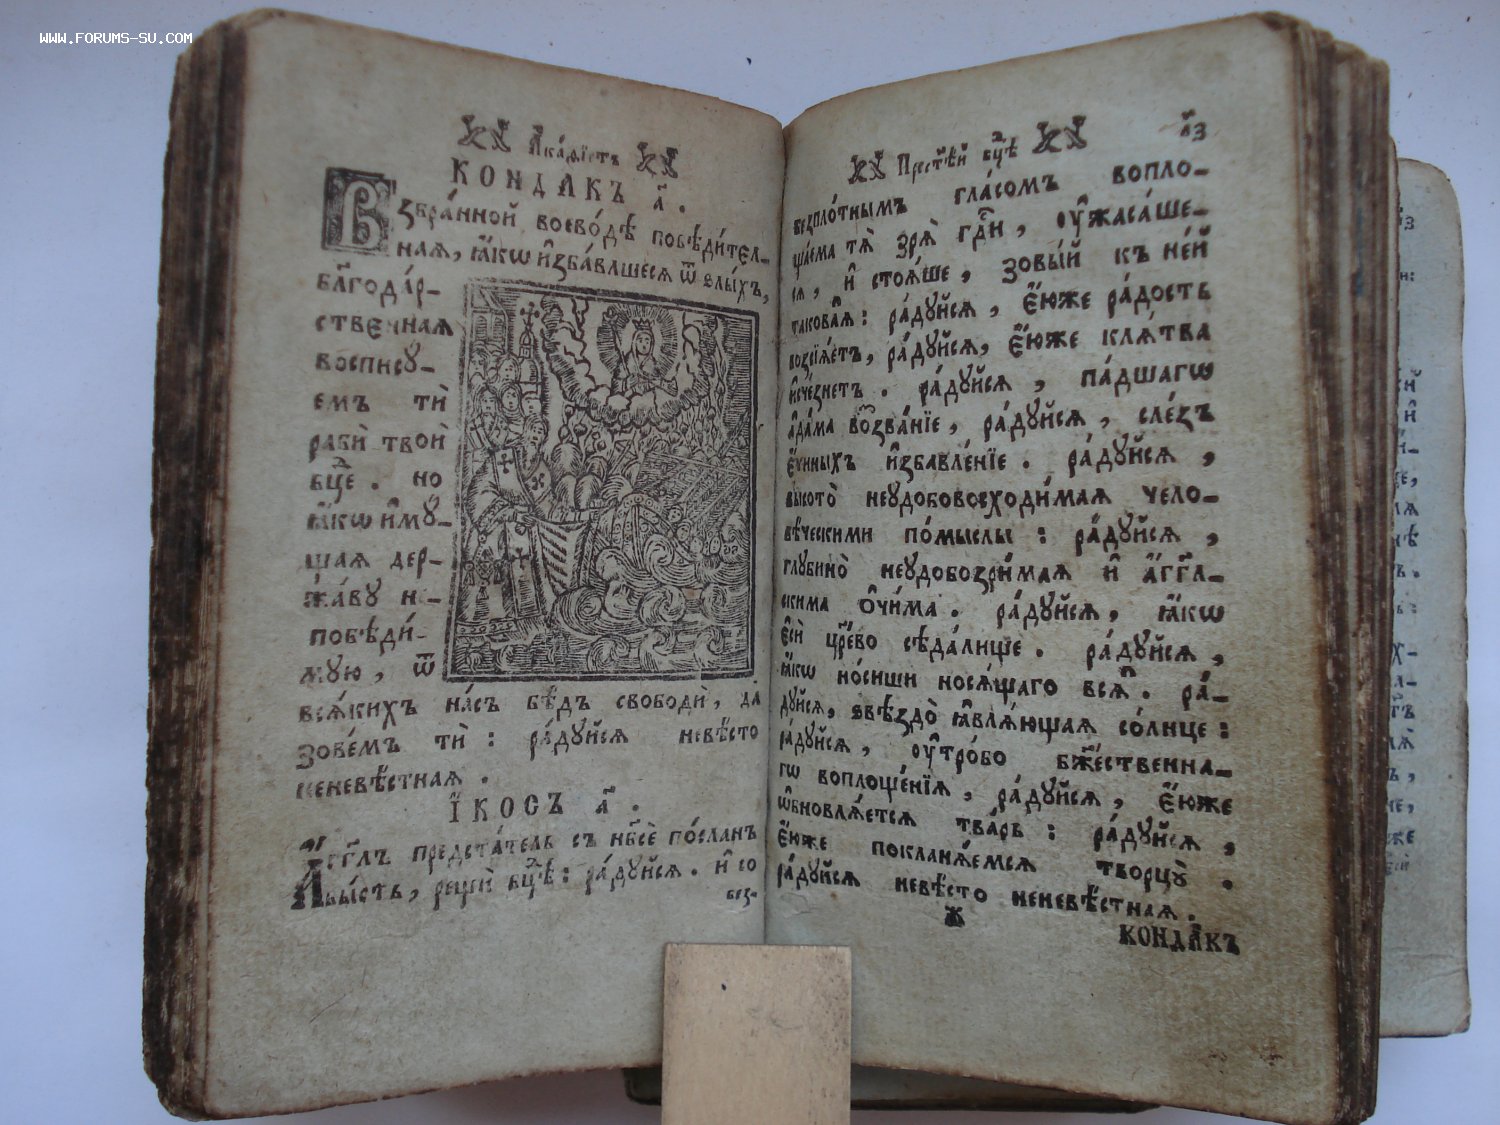 www.forums-su.com
А҆ка́ѳїстъ
КОНДАКЪ а҃.
Взбра́нной воево́дѣ побѣди́тел-
ная, ꙗ҆́кѡ и҆зба́влшеся ѿ ѕлы́хъ,
блг҃ода́р-
ственная
восписꙋ́-
емъ тѝ
рабѝ твоѝ
бц҃е. но
ꙗ҆́кѡ и҆мꙋ́-
щая дер-
жа́вꙋ не-
побѣди́-
мꙋю, ѿ
вся́кихъ на́съ бѣ́дъ свободѝ, да
зове́мъ тѝ: ра́дꙋйся невѣ́сто
неневѣ́стная.
І҆КОСЪ а҃.
А҆́гг҃лъ предста́тель съ нб҃сѐ по́сланъ
бы́сть, рещѝ бц҃ѣ: ра́дꙋйся. и҆ со
без-
Прест҃ѣ́й бц҃ѣ
л҃з
безпло́тнымъ гла́сомъ вопло-
ща́ема тѧ̀ зрѧ̀ гд҇и, ᲂу҆жаса́ше-
ся, и҆ стоя́ше, зовы́й къ не́й
такова́я: ра́дꙋйся, є҆́юже ра́дость
возсїя́етъ, ра́дꙋйся, є҆́юже кля́тва
и҆сче́знетъ. ра́дꙋйся, па́дшагѡ
а҆да́ма воззва́нїе, ра́дꙋйся, сле́зъ
є҆́ѵиныхъ и҆збавле́нїе. ра́дꙋйся,
высото̀ неꙋдобовосходи́мая чело-
вѣ́ческими по́мыслы: ра́дꙋйся,
глꙋбино̀ неꙋдобозри́мая и҆ а҆́гг҃л-
скима ѻ҆чи́ма. ра́дꙋйся, ꙗ҆́кѡ
є҆сѝ цр҃е́во сѣда́лище. ра́дꙋйся,
ꙗ҆́кѡ но́сиши нося́щаго вся̑. ра́-
дꙋйся, ѕвѣздо̀ ꙗ҆вля́ющая со́лнце:
ра́дꙋйся, ᲂу҆тро́бо бж҃е́ственна-
гѡ воплоще́нїя, ра́дꙋйся, є҆́юже
ѡ҆бновля́ется тва́рь: ра́дꙋйся,
є҆́юже покланя́емся творцꙋ̀.
ра́дꙋйся невѣ́сто неневѣ́стная.
Ж
КОНДАКЪ